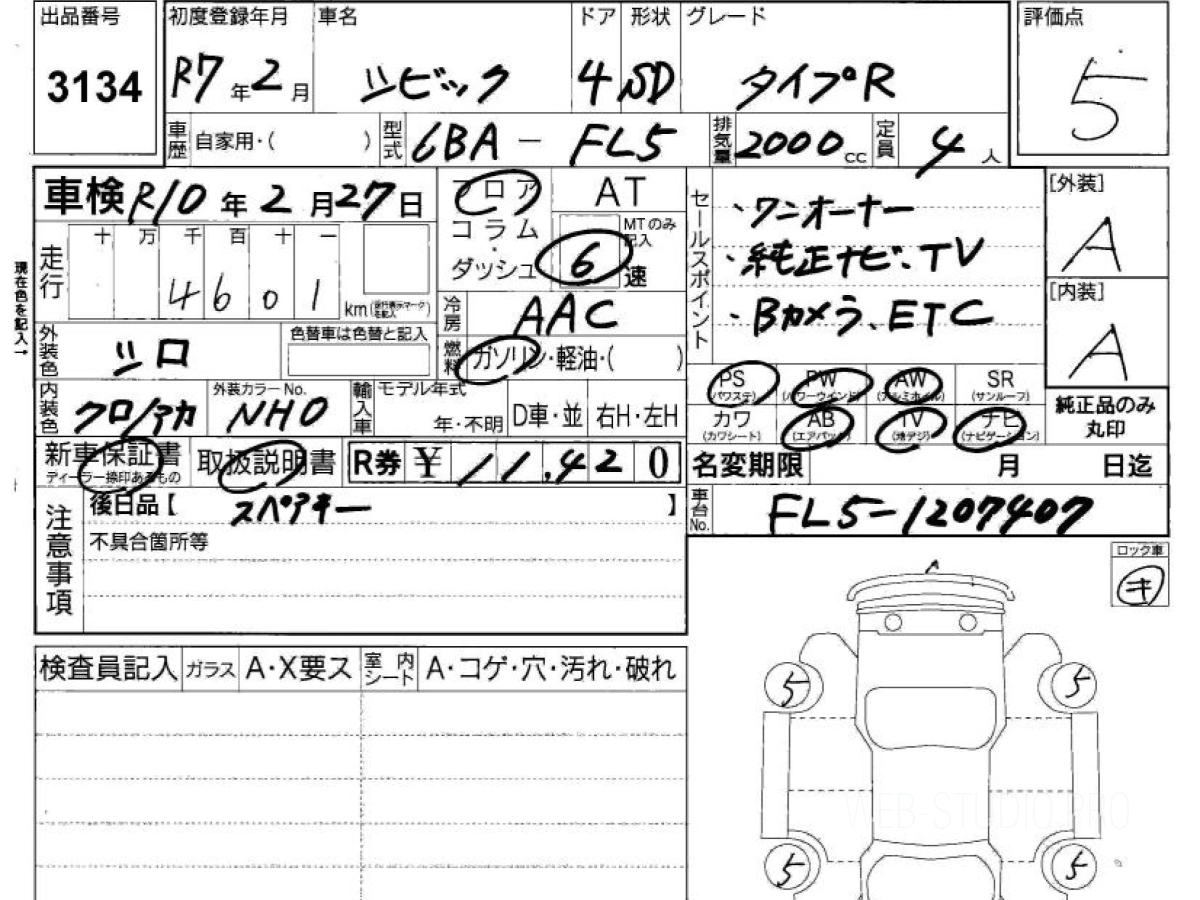 出品番号
3134
初度登録年月
R7年2月
車名
シビック
ドア
4
形状
SD
グレード
タイプR
評価点
5
車歴
自家用・( )
型式
6BA - FL5
排気量
2000cc
定員
4人
車検 R10年2月27日
フロア
コラム
・
ダッシュ
AT
MTのみ
記入
6速
セールスポイント
・ワンオーナー
・純正ナビ、TV
・Bカメラ、ETC
[外装]
A
[内装]
A
純正品のみ
丸印
現在色を記入→
走行
十 万 千 百 十 一
4 6 0 1
km
冷房
AAC
外装色
シロ
色替車は色替と記入
燃料
ガソリン・軽油・( )
PS
(パワステ)
PW
(パワーウインド)
AW
(アルミホイル)
SR
(サンルーフ)
カワ
(カワシート)
AB
(エアバック)
TV
(地デジ)
ナビ
(ナビゲーション)
内装色
クロ/アカ
外装カラーNo.
NH0
輸入車
モデル年式
年・不明
D車・並
右H・左H
新車保証書
ディーラー捺印あるもの
取扱説明書
R券 ¥ 11,420
名変期限 月 日迄
注意事項
後日品【 スペアキー 】
不具合箇所等
車台No.
FL5-1207407
ロック車
キ
A
5
5
5
5
検査員記入
ガラス
A・X要ス
室内シート
A・コゲ・穴・汚れ・破れ
WEB-STUDIO.PRO